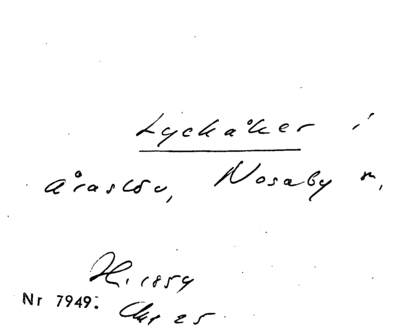 Lyckåker i
Åraslöv, Nosaby sn,
H. 1854
Nr 7949: Akt 25